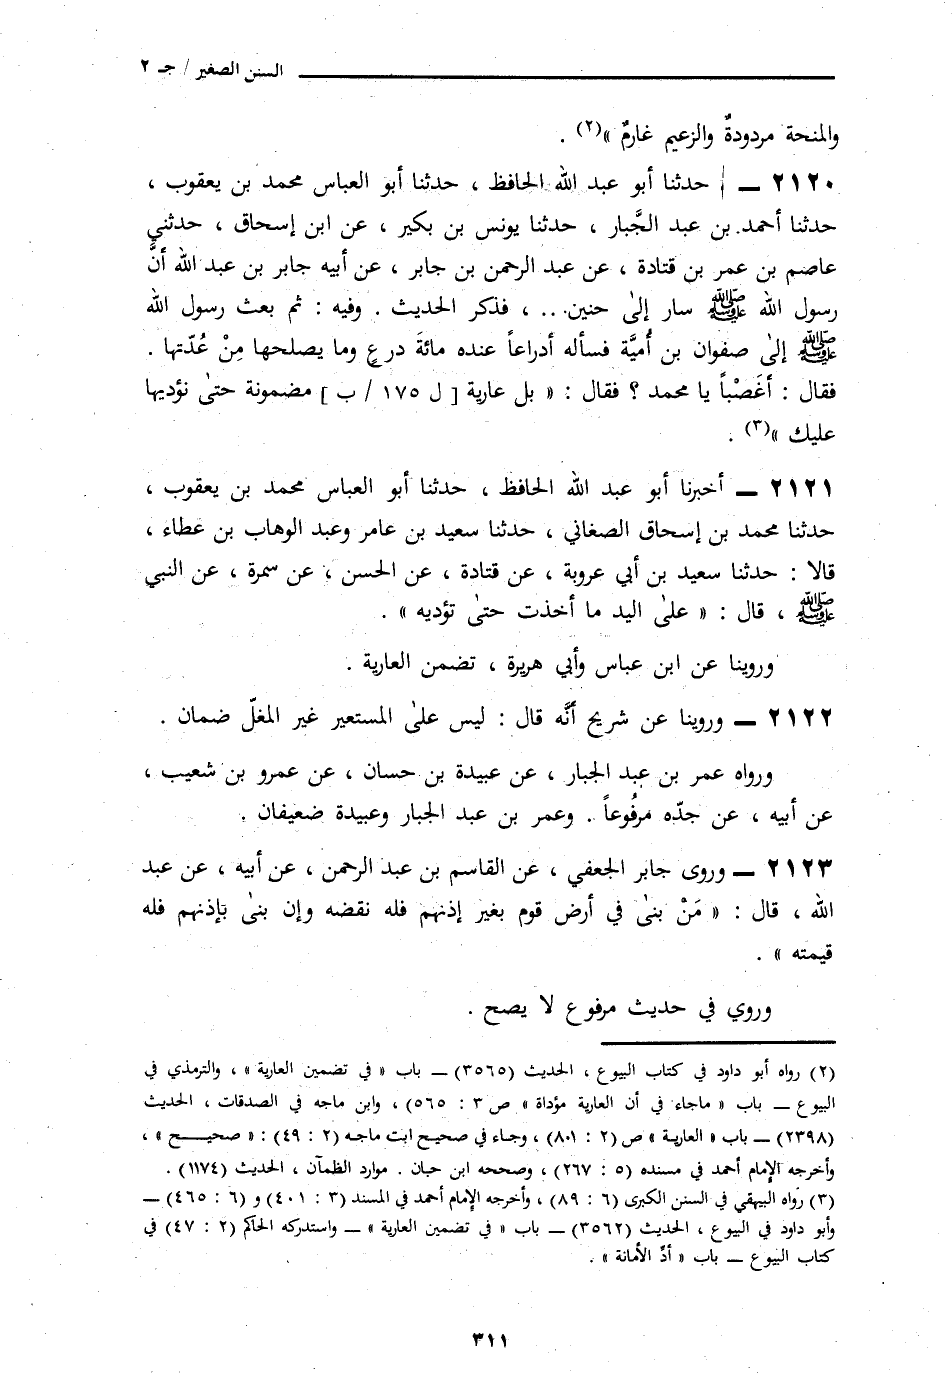 السنن الصغير / جـ ٢
والمنحة مردودةٌ والزعيم غارمٌ »(٢) .
٢١٢٠ ــ حدثنا أبو عبد الله الحافظ ، حدثنا أبو العباس محمد بن يعقوب ،
حدثنا أحمد بن عبد الجَّبار ، حدثنا يونس بن بكير ، عن ابن إسحاق ، حدثني
عاصم بن عمر بن قتادة ، عن عبد الرحمن بن جابر ، عن أبيه جابر بن عبد الله أنَّ
رسول الله ﷺ سار إلىٰ حنين... ، فذكر الحديث . وفيه : ثم بعث رسول الله
ﷺ إلىٰ صفوان بن أُميَّة فسأله أدراعاً عنده مائةَ درعٍ وما يصلحها مِنْ عُدّتها .
فقال : أغَصْباً يا محمد ؟ فقال : « بل عارية [ ل ١٧٥ / ب ] مضمونة حتىٰ نؤديها
عليك »(٣) .
٢١٢١ ــ أخبرنا أبو عبد الله الحافظ ، حدثنا أبو العباس محمد بن يعقوب ،
حدثنا محمد بن إسحاق الصغاني ، حدثنا سعيد بن عامر وعبد الوهاب بن عطاء ،
قالا : حدثنا سعيد بن أبي عروبة ، عن قتادة ، عن الحسن ، عن سمرة ، عن النبي
ﷺ ، قال : « علىٰ اليد ما أخذت حتىٰ تؤديه » .
وروينا عن ابن عباس وأبي هريرة ، تضمن العارية .
٢١٢٢ ــ وروينا عن شريح أنَّه قال : ليس علىٰ المستعير غير المغلّ ضمان .
ورواه عمر بن عبد الجبار ، عن عبيدة بن حسان ، عن عمرو بن شعيب ،
عن أبيه ، عن جدّه مرفُوعاً . وعمر بن عبد الجبار وعبيدة ضعيفان .
٢١٢٣ ــ وروى جابر الجعفي ، عن القاسم بن عبد الرحمن ، عن أبيه ، عن عبد
الله ، قال : « مَنْ بنىٰ في أرض قوم بغير إذنهم فله نقضه وإن بنىٰ بإذنهم فله
قيمته » .
وروي في حديث مرفوع لا يصح .
(٢) رواه أبو داود في كتاب البيوع ، الحديث (٣٥٦٥) ــ باب « في تضمين العارية » ، والترمذي في
البيوع ــ باب « ماجاء في أن العارية مؤداة » ص ٣ : ٥٦٥) ، وابن ماجه في الصدقات ، الحديث
(٢٣٩٨) ــ باب « العارية » ص (٢ : ٨٠١) ، وجاء في صحيح ابت ماجه (٢ : ٤٩) : « صحيــــح » ،
وأخرجه الإمام أحمد في مسنده (٥ : ٢٦٧) ، وصححه ابن حبان . موارد الظمآن ، الحديث (١١٧٤) .
(٣) رواه البيهقي في السنن الكبرى (٦ : ٨٩) ، وأخرجه الإمام أحمد في المسند (٣ : ٤٠١) و (٦ : ٤٦٥) ــ
وأبو داود في البيوع ، الحديث (٣٥٦٢) ــ باب « في تضمين العارية » ــ واستدركه الحاكم (٢ : ٤٧) في
كتاب البيوع ــ باب « أدِّ الأمانة » .
٣١١